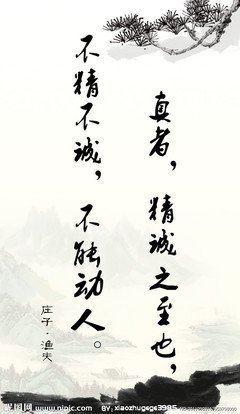 真者，精诚之至也，
不精不诚，不能动人。
庄子·渔夫
昵图网 www.nipic.com
BY: xiaozhugege3995